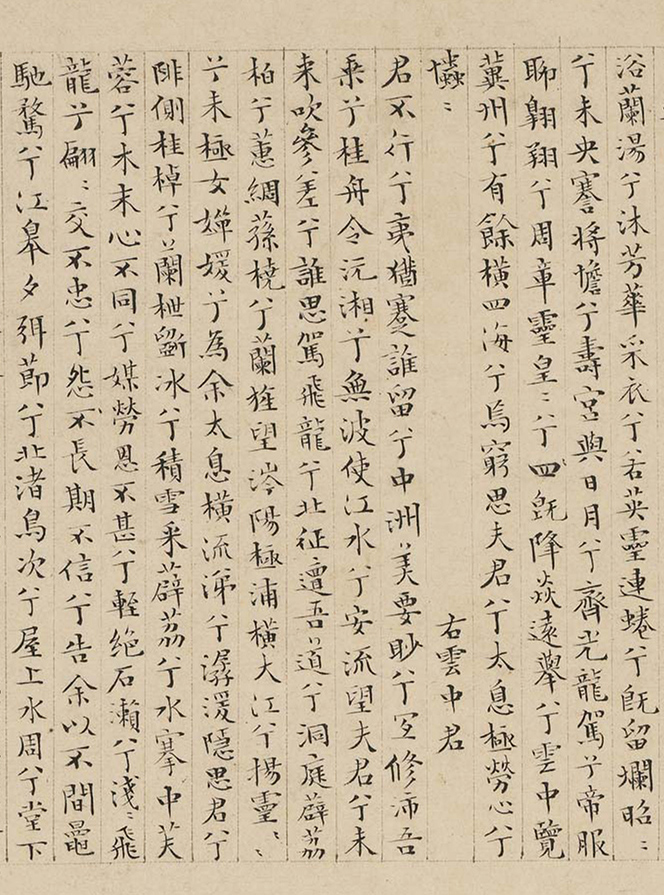 浴蘭湯兮沐芳華采衣兮若英靈連蜷兮既留爛昭〻
兮未央謇將憺兮壽宮與日月兮齊光龍駕兮帝服
聊翱翔兮周章靈皇〻兮四既降猋遠舉兮雲中覽
冀州兮有餘橫四海兮焉窮思夫君兮太息極勞心兮
爞〻
右雲中君
君不行兮夷猶蹇誰留兮中洲美要眇兮宜修沛吾
乘兮桂舟令沅湘兮無波使江水兮安流望夫君兮未
來吹參差兮誰思駕飛龍兮北征邅吾道兮洞庭薜荔
柏兮蕙綢蓀橈兮蘭旌望涔陽極浦橫大江兮揚靈〻
兮未極女嬋媛兮為余太息橫流涕兮潺湲隱思君兮
陫側桂棹兮蘭枻斲冰兮積雪采薜荔兮水搴中芙
蓉兮木末心不同兮媒勞恩不甚兮輕絕石瀨兮淺〻飛
龍兮翩〻交不忠兮怨不長期不信兮告余以不間鼂
馳騖兮江皋夕弭節兮北渚鳥次兮屋上水周兮堂下